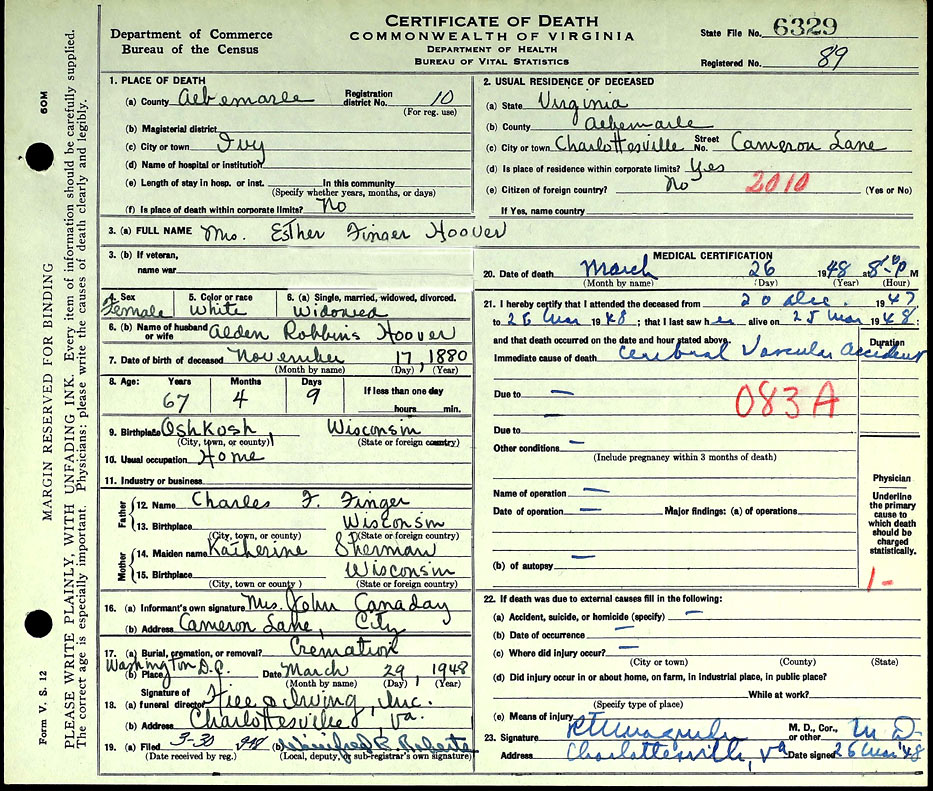 CERTIFICATE OF DEATH
COMMONWEALTH OF VIRGINIA
DEPARTMENT OF HEALTH
BUREAU OF VITAL STATISTICS
Department of Commerce
Bureau of the Census
State File No. 6329
Registered No. 89
60M
MARGIN RESERVED FOR BINDING
PLEASE WRITE PLAINLY, WITH UNFADING INK. Every item of information should be carefully supplied.
The correct age is especially important. Physicians: please write the causes of death clearly and legibly.
Form V. S. 12
1. PLACE OF DEATH
(a) County Albemarle Registration district No. 10
(For reg. use)
(b) Magisterial district
(c) City or town Ivy
(d) Name of hospital or institution
(e) Length of stay in hosp. or inst. In this community
(Specify whether years, months, or days)
(f) Is place of death within corporate limits? No
2. USUAL RESIDENCE OF DECEASED
(a) State Virginia
(b) County Albemarle
(c) City or town Charlottesville Street No. Cameron Lane
(d) Is place of residence within corporate limits? Yes
(e) Citizen of foreign country? No 2010 (Yes or No)
If Yes, name country
3. (a) FULL NAME Mrs. Esther Finger Hoover
3. (b) If veteran,
name war
4. Sex Female
5. Color or race White
6. (a) Single, married, widowed, divorced. Widowed
6. (b) Name of husband or wife Alden Robbins Hoover
7. Date of birth of deceased November 17, 1880
(Month by name) (Day) (Year)
8. Age: Years Months Days If less than one day
67 4 9 hours min.
9. Birthplace Oshkosh, Wisconsin
(City, town, or county) (State or foreign country)
10. Usual occupation Home
11. Industry or business
Father
12. Name Charles F. Finger
13. Birthplace Wisconsin
(City, town, or county) (State or foreign country)
Mother
14. Maiden name Katherine Sherman
15. Birthplace Wisconsin
(City, town or county) (State or foreign country)
16. (a) Informant's own signature Mrs. John Canaday
(b) Address Cameron Lane, City
17. (a) Burial, cremation, or removal? Cremation
Washington D.C.
(b) Place Date March 29, 1948
(Month by name) (Day) (Year)
18. Signature of
(a) funeral director Hill & Irving, Inc.
(b) Address Charlottesville, Va.
19. (a) Filed 3-30 1948 (b) Winifred R. Roberts
(Date received by reg.) (Local, deputy, or sub-registrar's own signature)
MEDICAL CERTIFICATION
20. Date of death March 26 1948 at P M
(Month by name) (Day) (Year) (Hour)
21. I hereby certify that I attended the deceased from 20 Dec. 1947
to 26 Mar 1948; that I last saw her alive on 25 Mar 1948;
and that death occurred on the date and hour stated above. Duration
Immediate cause of death Cerebral Vascular Accident
Due to
083A
Due to
Other conditions
(Include pregnancy within 3 months of death)
Name of operation
Date of operation Major findings: (a) of operations
(b) of autopsy
Physician
Underline the primary cause to which death should be charged statistically.
1-
22. If death was due to external causes fill in the following:
(a) Accident, suicide, or homicide (specify)
(b) Date of occurrence
(c) Where did injury occur?
(City or town) (County) (State)
(d) Did injury occur in or about home, on farm, in industrial place, in public place?
While at work?
(Specify type of place)
(e) Means of injury
23. Signature M. D., Cor., or other M D
Address Charlottesville, Va Date signed 26 Mar '48